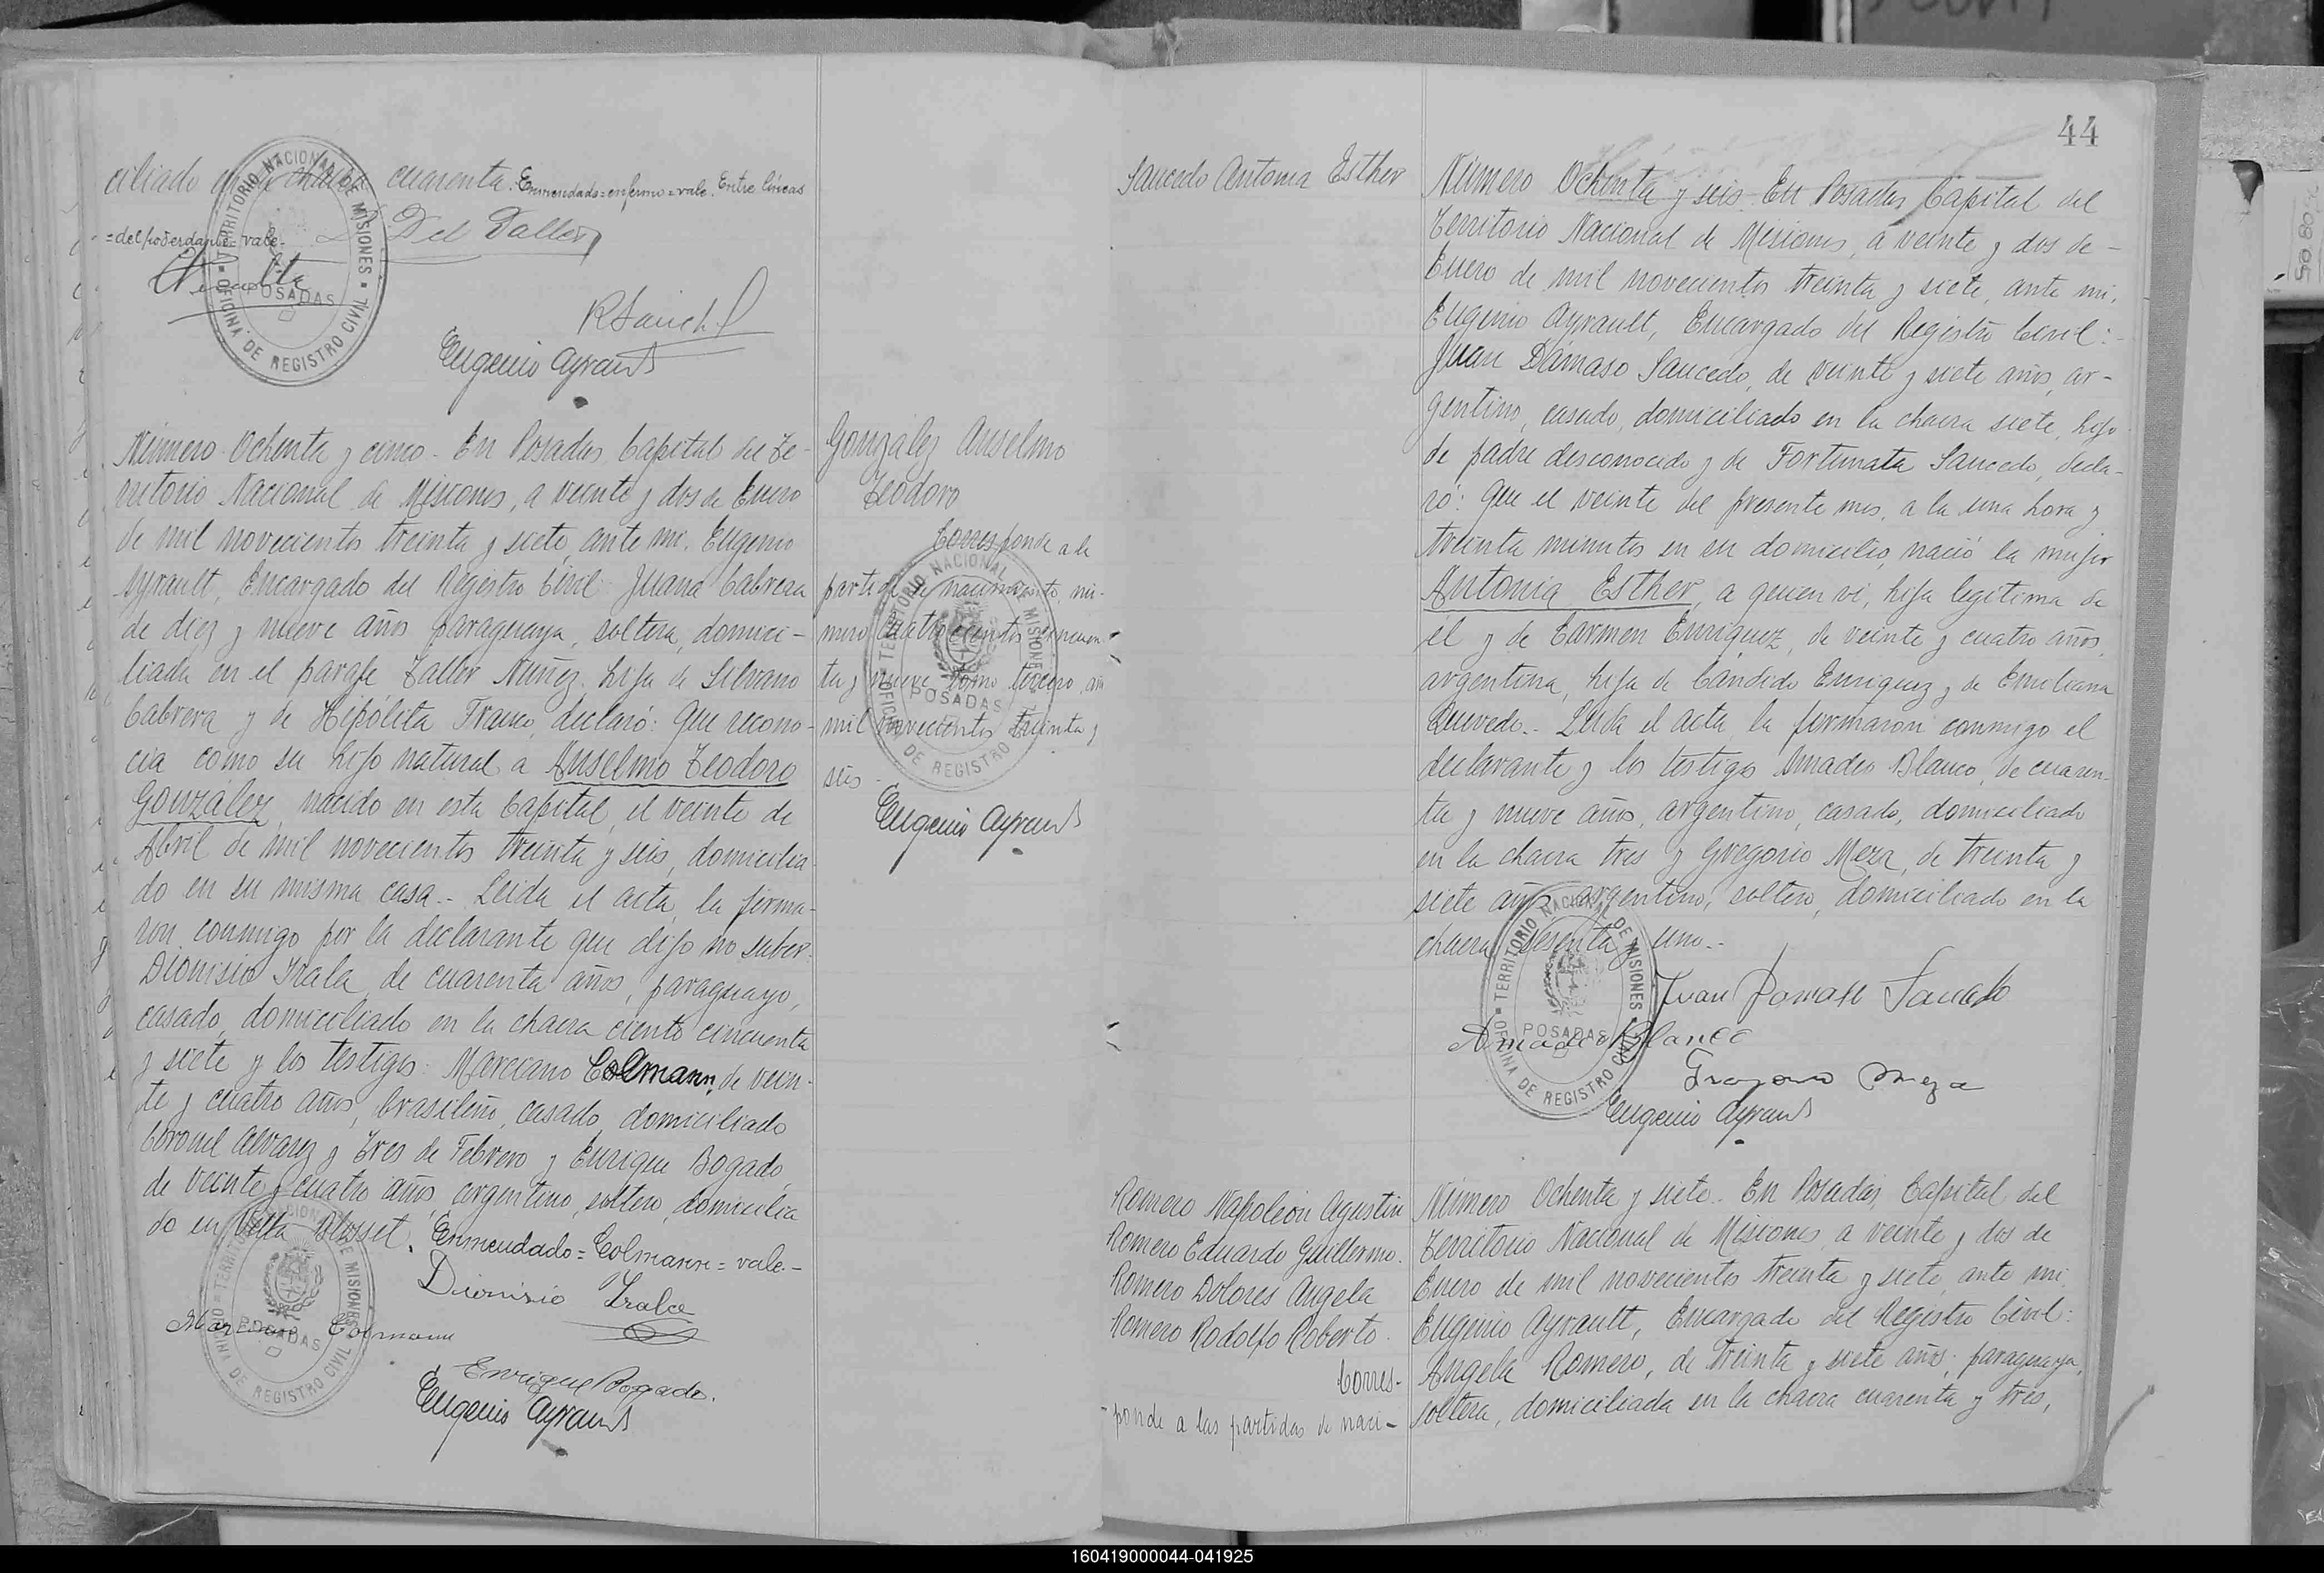 ciliado en la chacra cuarenta. Enmendado=enfermo=vale. Entre líneas
=del poderdante=vale.-
Eugenio Ayrault
Número Ochenta y cinco.- En Posadas Capital del Te-
rritorio Nacional de Misiones, a veinte y dos de Enero
de mil novecientos treinta y siete, ante mi, Eugenio
Ayrault, Encargado del Registro Civil: Juana Cabrera
de diez y nueve años, paraguaya, soltera, domici-
liada en el paraje Taller Nuñez, hija de Silvano
Cabrera y de Hipólita Franco, declaró: Que recono-
cía como su hijo natural a Anselmo Teodoro
González, nacido en esta Capital, el veinte de
Abril de mil novecientos treinta y seis, domicilia-
do en su misma casa.- Leida el acta, la firma-
ron conmigo por la declarante que dijo no saber:
Dionisio Irala, de cuarenta años, paraguayo,
casado, domiciliado en la chacra ciento cincuenta
y siete y los testigos: Marciano Colmann, de vein-
te y cuatro años, brasileño, casado, domiciliado
Coronel Alvarez y Tres de Febrero y Enrique Bogado,
de veinte y cuatro años, argentino, soltero, domicilia
do en Villa Blosset. Enmendado=Colmann=vale.-
Dionisio Irala
Marciano Colmann
Enrique Bogado.
Eugenio Ayrault
González Anselmo
Teodoro
Corresponde a la
partida de nacimiento, nú-
mero cuatrocientos cincuen-
ta y nueve, tomo tercero, año
mil novecientos treinta y
seis.-
Eugenio Ayrault
TERRITORIO NACIONAL DE MISIONES
POSADAS
OFICINA DE REGISTRO CIVIL
44
Saucedo Antonia Esther
Número Ochenta y seis.- En Posadas Capital del
Territorio Nacional de Misiones, a veinte y dos de-
Enero de mil novecientos treinta y siete, ante mi,
Eugenio Ayrault, Encargado del Registro Civil:-
Juan Dámaso Saucedo, de veinte y siete años, ar-
gentino, casado, domiciliado en la chacra siete, hijo
de padre desconocido y de Fortunata Saucedo, decla-
ró: Que el veinte del presente mes, a la una hora y
treinta minutos en su domicilio, nació la mujer
Antonia Esther, a quien vi, hija legítima de
él y de Carmen Enriquez, de veinte y cuatro años,
argentina, hija de Cándido Enriquez y de Emiliana
Quevedo.- Leida el acta, la firmaron conmigo el
declarante y los testigos Amadeo Blanco, de cuaren-
ta y nueve años, argentino, casado, domiciliado
en la chacra tres y Gregorio Meza, de treinta y
siete años, argentino, soltero, domiciliado en la
chacra sesenta y uno.-
Juan Damaso Saucedo
Amadeo Blanco
Gregorio Meza
Eugenio Ayrault
Romero Napoleón Agustín
Romero Eduardo Guillermo.
Romero Dolores Angela
Romero Rodolfo Roberto.
Corres-
ponde a las partidas de naci-
Número Ochenta y siete.- En Posadas, Capital del
Territorio Nacional de Misiones, a veinte y dos de
Enero de mil novecientos treinta y siete, ante mi,
Eugenio Ayrault, Encargado del Registro Civil:
Angela Romero, de treinta y siete años, paraguaya,
soltera, domiciliada en la chacra cuarenta y tres,
160419000044-041925